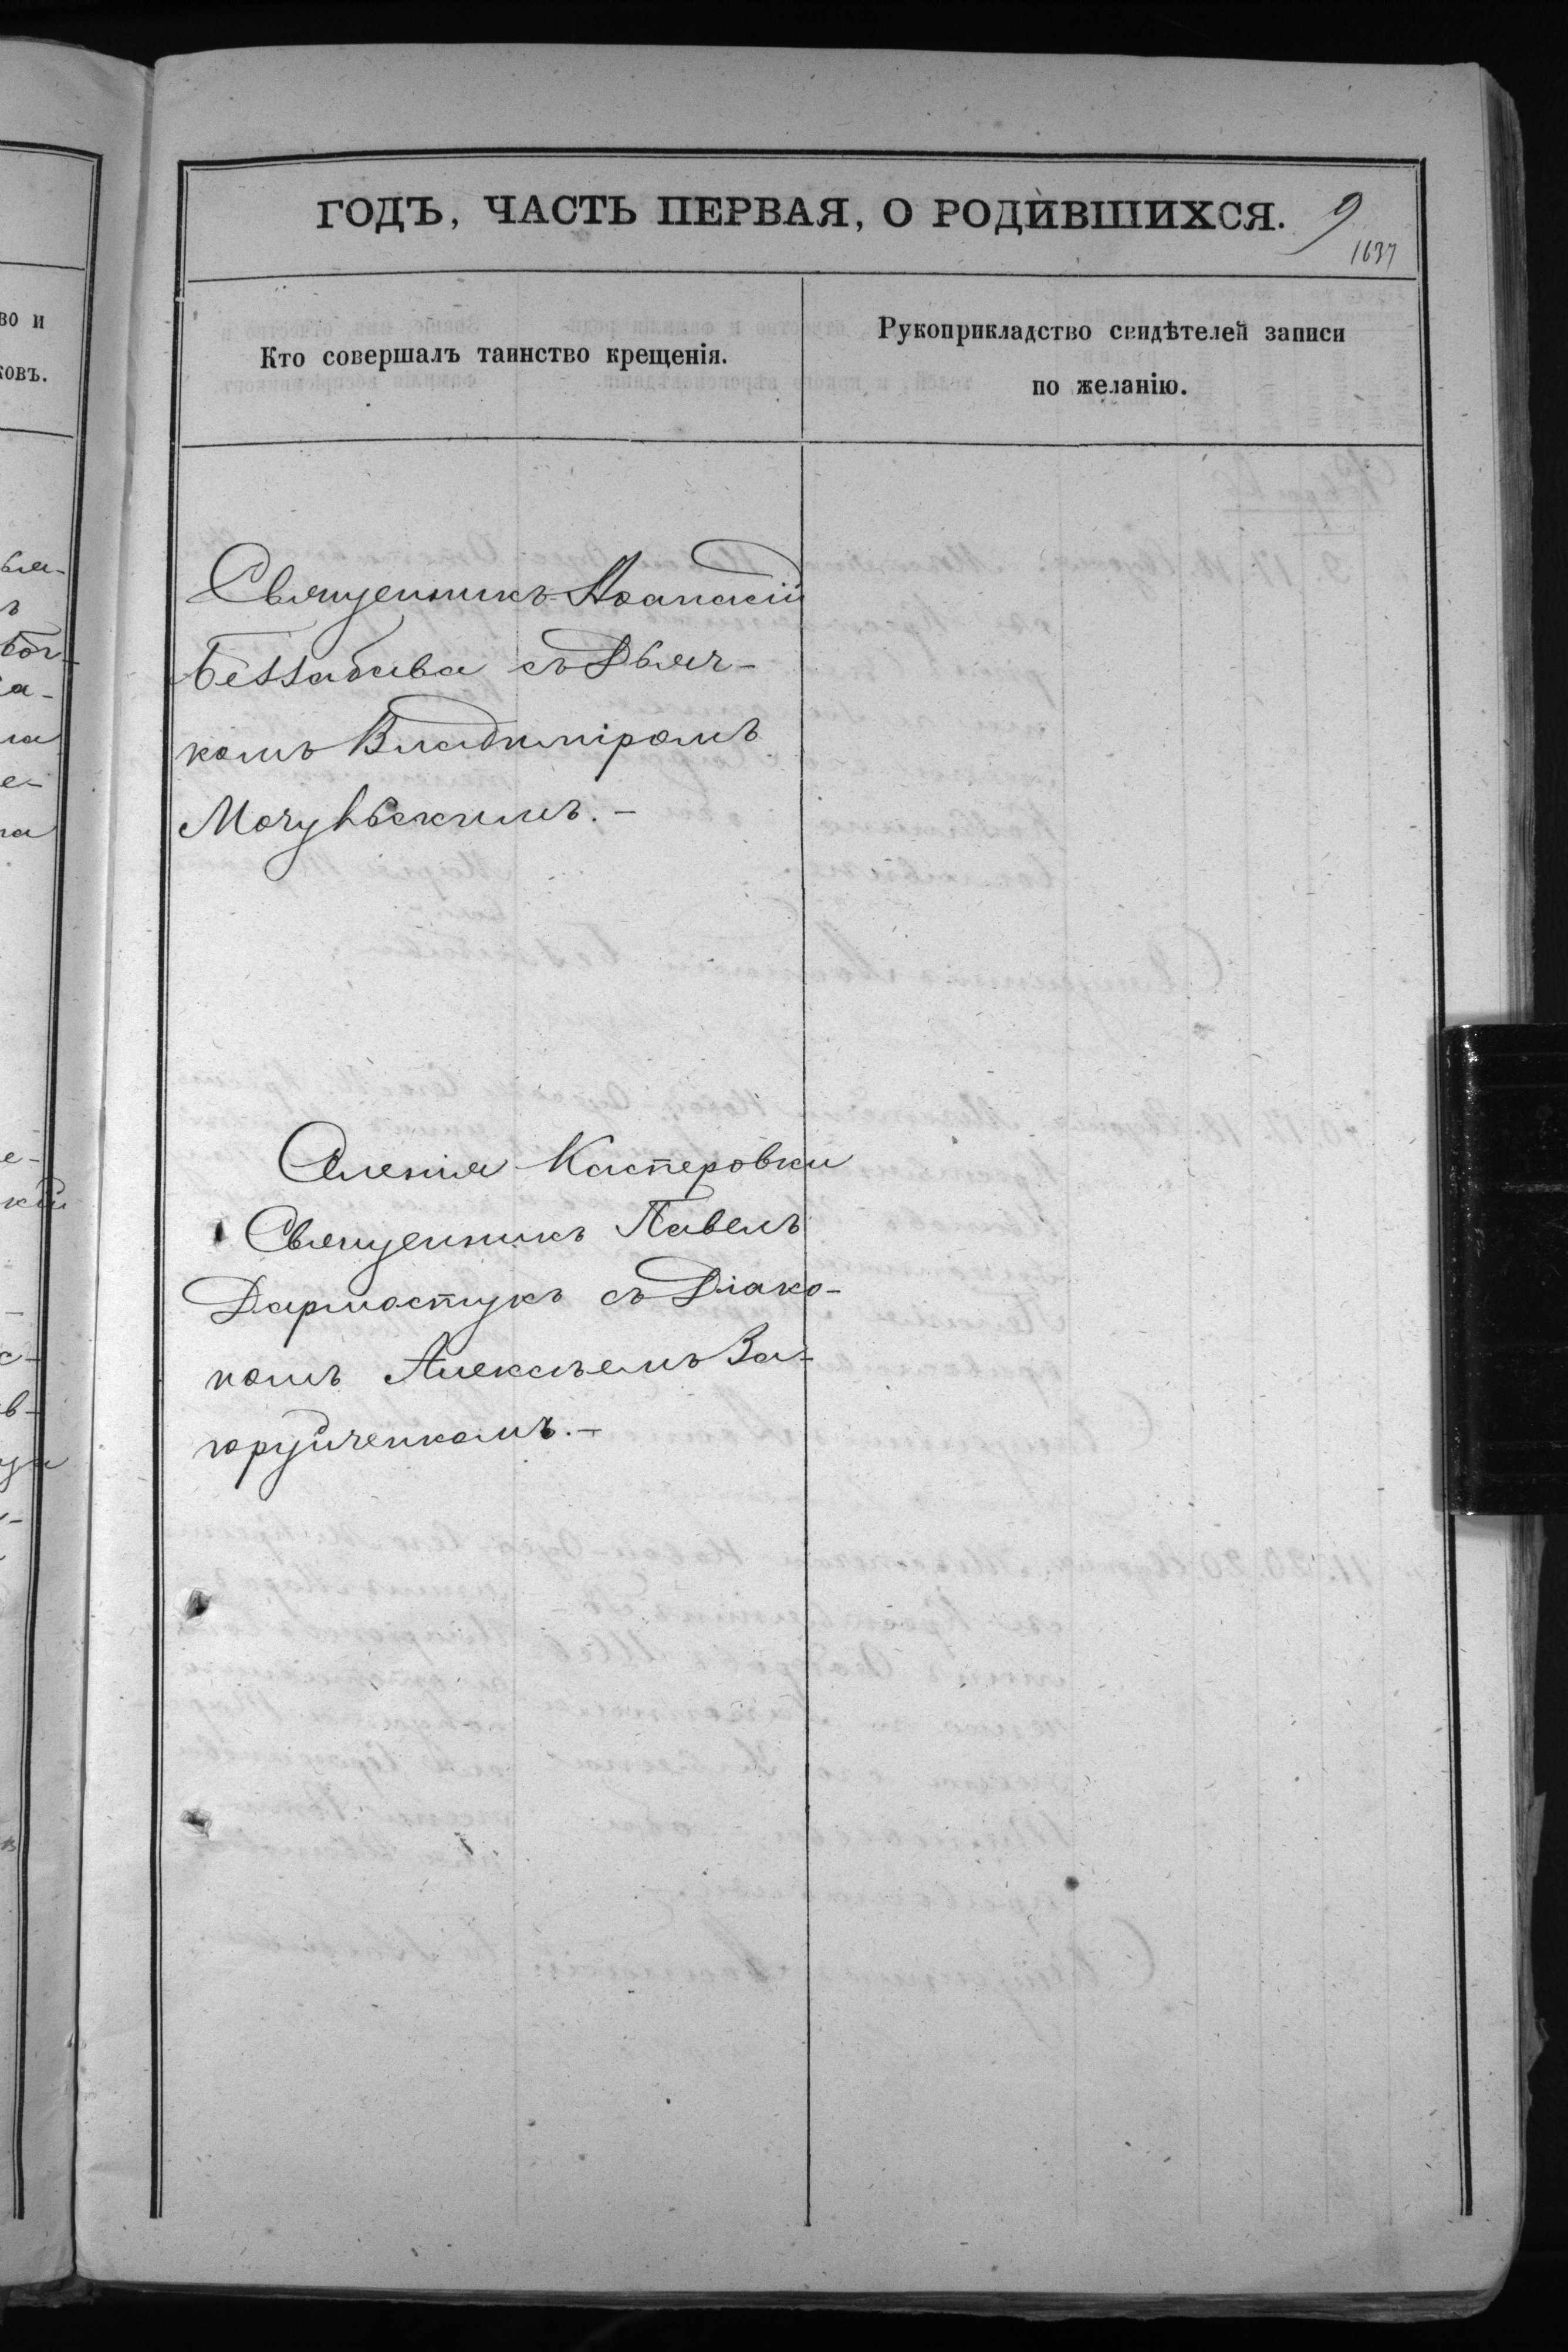 ГОДЪ, ЧАСТЬ ПЕРВАЯ, О РОДИВШИХСЯ.
9
1637
Кто совершалъ таинство крещенія.
Рукоприкладство свидѣтелей записи
по желанію.
Священникъ Аѳанасій
Беззабава съ Дьяч-
комъ Владиміромъ
Селенія Касперовки
Священникъ Павелъ
Дармостукъ съ Діако-
номъ Алексѣемъ За-
горуйченкомъ.-